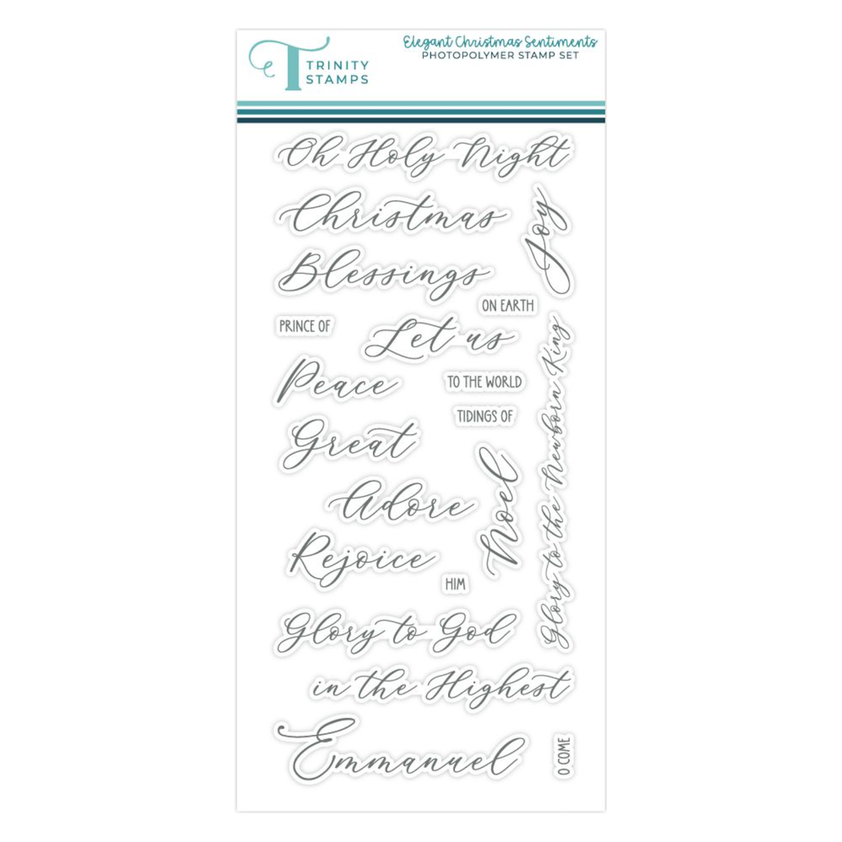 TRINITY
STAMPS
Elegant Christmas Sentiments
PHOTOPOLYMER STAMP SET
Oh Holy Night
Christmas
Joy
Blessings
ON EARTH
PRINCE OF
Let us
Peace
TO THE WORLD
TIDINGS OF
Great
Glory to the Newborn King
Noel
Adore
Rejoice
HIM
Glory to God
in the Highest
Emmanuel
O COME